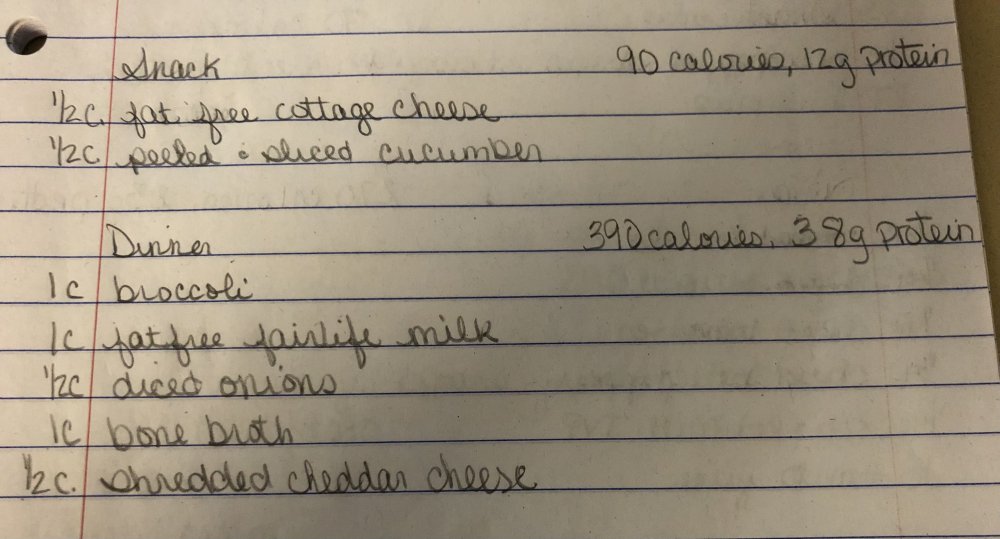 Snack 90 calories, 12g protein
1/2c. fat free cottage cheese
1/2c peeled & sliced cucumber
Dinner 390 calories, 38g protein
1c broccoli
1c fatfree fairlife milk
1/2c diced onions
1c bone broth
1/2c. shredded cheddar cheese